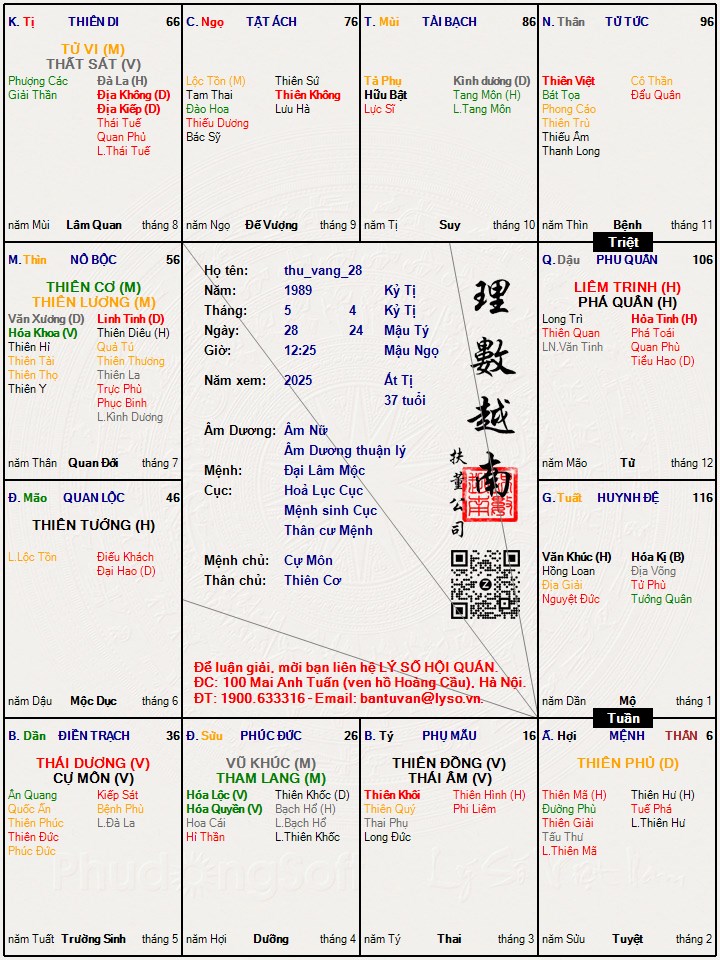 K. Tị THIÊN DI 66
TỬ VI (M)
THẤT SÁT (V)
Phượng Các Đà La (H)
Giải Thần Địa Không (D)
Địa Kiếp (D)
Thái Tuế
Quan Phủ
L.Thái Tuế
năm Mùi Lâm Quan tháng 8
C. Ngọ TẬT ÁCH 76
Lộc Tồn (M) Thiên Sứ
Tam Thai Thiên Không
Đào Hoa Lưu Hà
Thiếu Dương
Bác Sỹ
năm Ngọ Đế Vượng tháng 9
T. Mùi TÀI BẠCH 86
Tả Phụ Kình dương (D)
Hữu Bật Tang Môn (H)
Lực Sĩ L.Tang Môn
năm Tị Suy tháng 10
N. Thân TỬ TỨC 96
Thiên Việt Cô Thần
Bát Tọa Đẩu Quân
Phong Cáo
Thiên Trù
Thiếu Âm
Thanh Long
năm Thìn Bệnh tháng 11
Triệt
M. Thìn NÔ BỘC 56
THIÊN CƠ (M)
THIÊN LƯƠNG (M)
Văn Xương (D) Linh Tinh (D)
Hóa Khoa (V) Thiên Diêu (H)
Thiên Hỉ Quả Tú
Thiên Tài Thiên Thương
Thiên Thọ Thiên La
Thiên Y Trực Phù
Phục Binh
L.Kình Dương
năm Thân Quan Đới tháng 7
Họ tên: thu_vang_28
Năm: 1989 Kỷ Tị
Tháng: 5 4 Kỷ Tị
Ngày: 28 24 Mậu Tý
Giờ: 12:25 Mậu Ngọ
Năm xem: 2025 Ất Tị
37 tuổi
Âm Dương: Âm Nữ
Âm Dương thuận lý
Mệnh: Đại Lâm Mộc
Cục: Hoả Lục Cục
Mệnh sinh Cục
Thân cư Mệnh
Mệnh chủ: Cự Môn
Thân chủ: Thiên Cơ
理數越南
扶董公司
Để luận giải, mời bạn liên hệ LÝ SỐ HỘI QUÁN.
ĐC: 100 Mai Anh Tuấn (ven hồ Hoàng Cầu), Hà Nội.
ĐT: 1900.633316 - Email: bantuvan@lyso.vn.
Q. Dậu PHU QUÂN 106
LIÊM TRINH (H)
PHÁ QUÂN (H)
Long Trì Hỏa Tinh (H)
Thiên Quan Phá Toái
LN.Văn Tinh Quan Phù
Tiểu Hao (D)
năm Mão Tử tháng 12
Đ. Mão QUAN LỘC 46
THIÊN TƯỚNG (H)
L.Lộc Tồn Điếu Khách
Đại Hao (D)
năm Dậu Mộc Dục tháng 6
G. Tuất HUYNH ĐỆ 116
Văn Khúc (H) Hóa Kị (B)
Hồng Loan Địa Võng
Địa Giải Tử Phù
Nguyệt Đức Tướng Quân
năm Dần Mộ tháng 1
Tuần
B. Dần ĐIỀN TRẠCH 36
THÁI DƯƠNG (V)
CỰ MÔN (V)
Ân Quang Kiếp Sát
Quốc Ấn Bệnh Phù
Thiên Phúc L.Đà La
Thiên Đức
Phúc Đức
năm Tuất Trường Sinh tháng 5
Đ. Sửu PHÚC ĐỨC 26
VŨ KHÚC (M)
THAM LANG (M)
Hóa Lộc (V) Thiên Khốc (D)
Hóa Quyền (V) Bạch Hổ (H)
Hoa Cái L.Bạch Hổ
Hỉ Thần L.Thiên Khốc
năm Hợi Dưỡng tháng 4
B. Tý PHỤ MẪU 16
THIÊN ĐỒNG (V)
THÁI ÂM (V)
Thiên Khôi Thiên Hình (H)
Thiên Quý Phi Liêm
Thai Phụ
Long Đức
năm Tý Thai tháng 3
Ấ. Hợi MỆNH THÂN 6
THIÊN PHỦ (D)
Thiên Mã (H) Thiên Hư (H)
Đường Phù Tuế Phá
Thiên Giải L.Thiên Hư
Tấu Thư
L.Thiên Mã
năm Sửu Tuyệt tháng 2